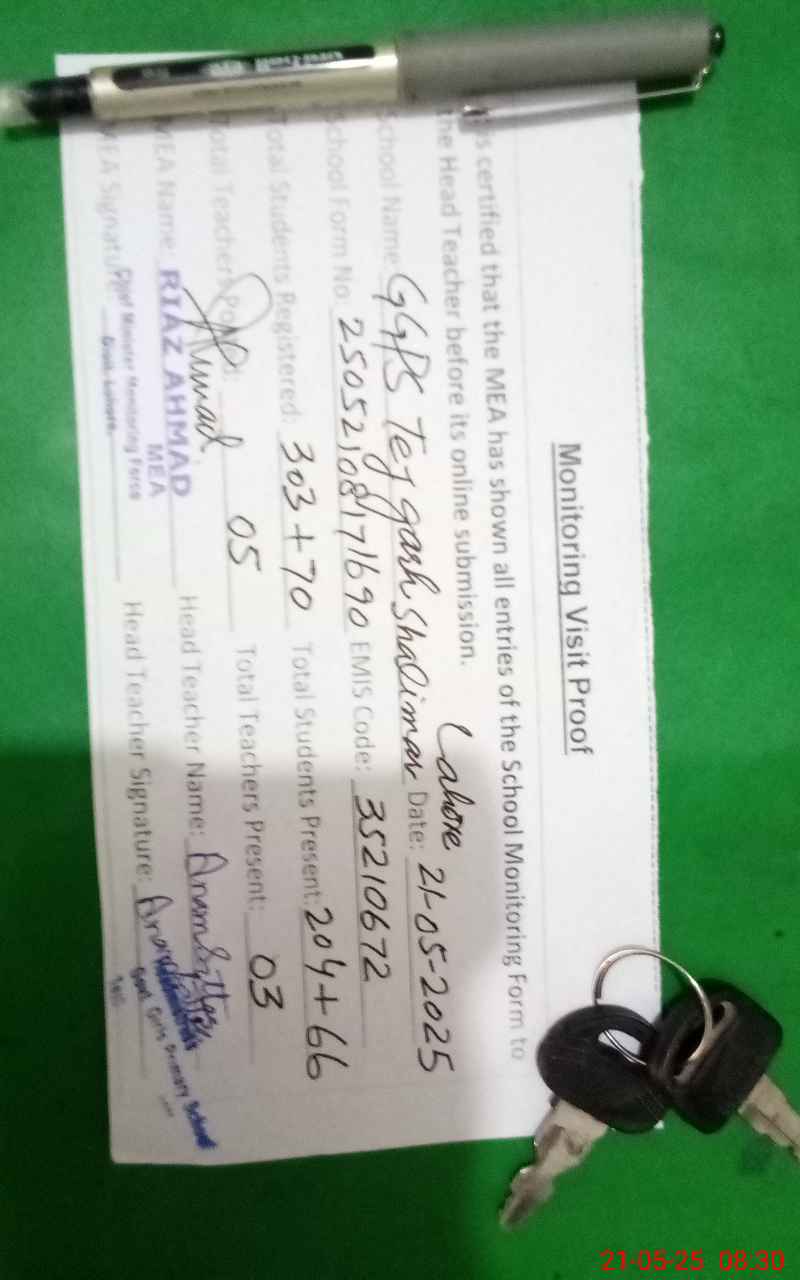 Monitoring Visit Proof
is certified that the MEA has shown all entries of the School Monitoring Form to
the Head Teacher before its online submission.
Lahore
School Name: GGPS Tej garh Shalimar Date: 21-05-2025
School Form No: 25052108171690 EMIS Code: 35210672
Total Students Registered: 303+70 Total Students Present: 204+66
Total Teachers 05 Total Teachers Present: 03
MEA Name: RIAZ AHMAD Head Teacher Name: Anam
MEA
MEA Signature: Head Teacher Signature: Anam
Chief Minister Monitoring Force
Distt. Lahore.
Govt. Girls Primary School
21-05-25 08.30